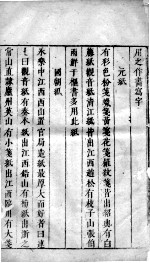 用之作畫寫字
元紙
有彩色粉箋蠟箋黃箋花箋羅紋箋皆出紹興有白
籙紙觀音紙清江紙皆出江西趙松雪
雨鮮于樞書多用此紙
國朝紙
永樂中江西西山置官局造紙最厚大而好者曰連
七曰觀音紙有奏本紙出江西鉛山有榜紙出浙之
常山直隸廬州英山有小箋紙出江西臨川有大箋